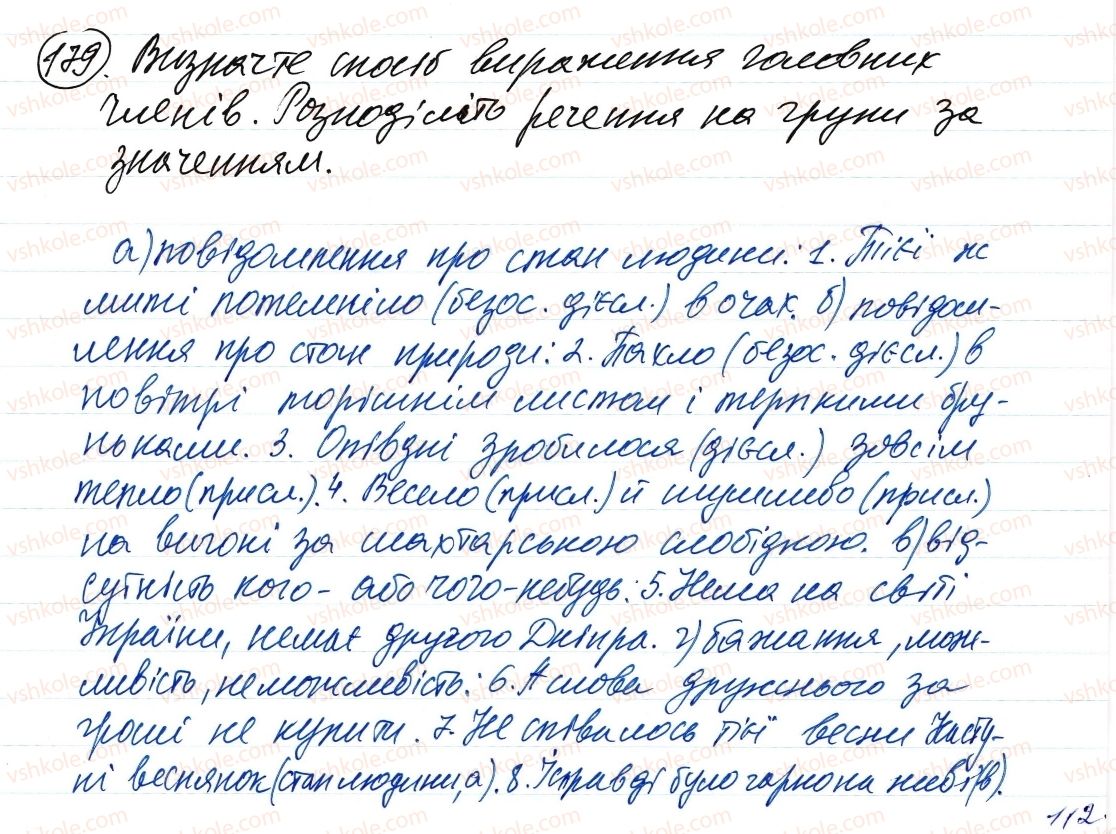 179. Визначте спосіб вираження головних
членів. Розподіліть речення на групи за
значенням.
а) повідомлення про стан людини: 1. Тієї ж
миті потемніло (безос. дієсл.) в очах. б) повідом-
лення про стан природи: 2. Пахло (безос. дієсл.) в
повітрі торішнім листом і терпкими бру-
ньками. 3. Опівдні зробилося (дієсл.) зовсім
тепло (присл.). 4. Весело (присл.) й шумливо (присл.)
на вигоні за шахтарською слобідкою. в) від-
сутність кого- або чого-небудь: 5. Нема на світі
України, немає другого Дніпра. г) бажання, мож-
ливість, неможливість: 6. А слова дружнього за
гроші не купити. 7. Не співалось тієї весни Насту-
пі веснянок (стан людини, а). 8. Справді було гарно на небі (в).
112
vshkole.com